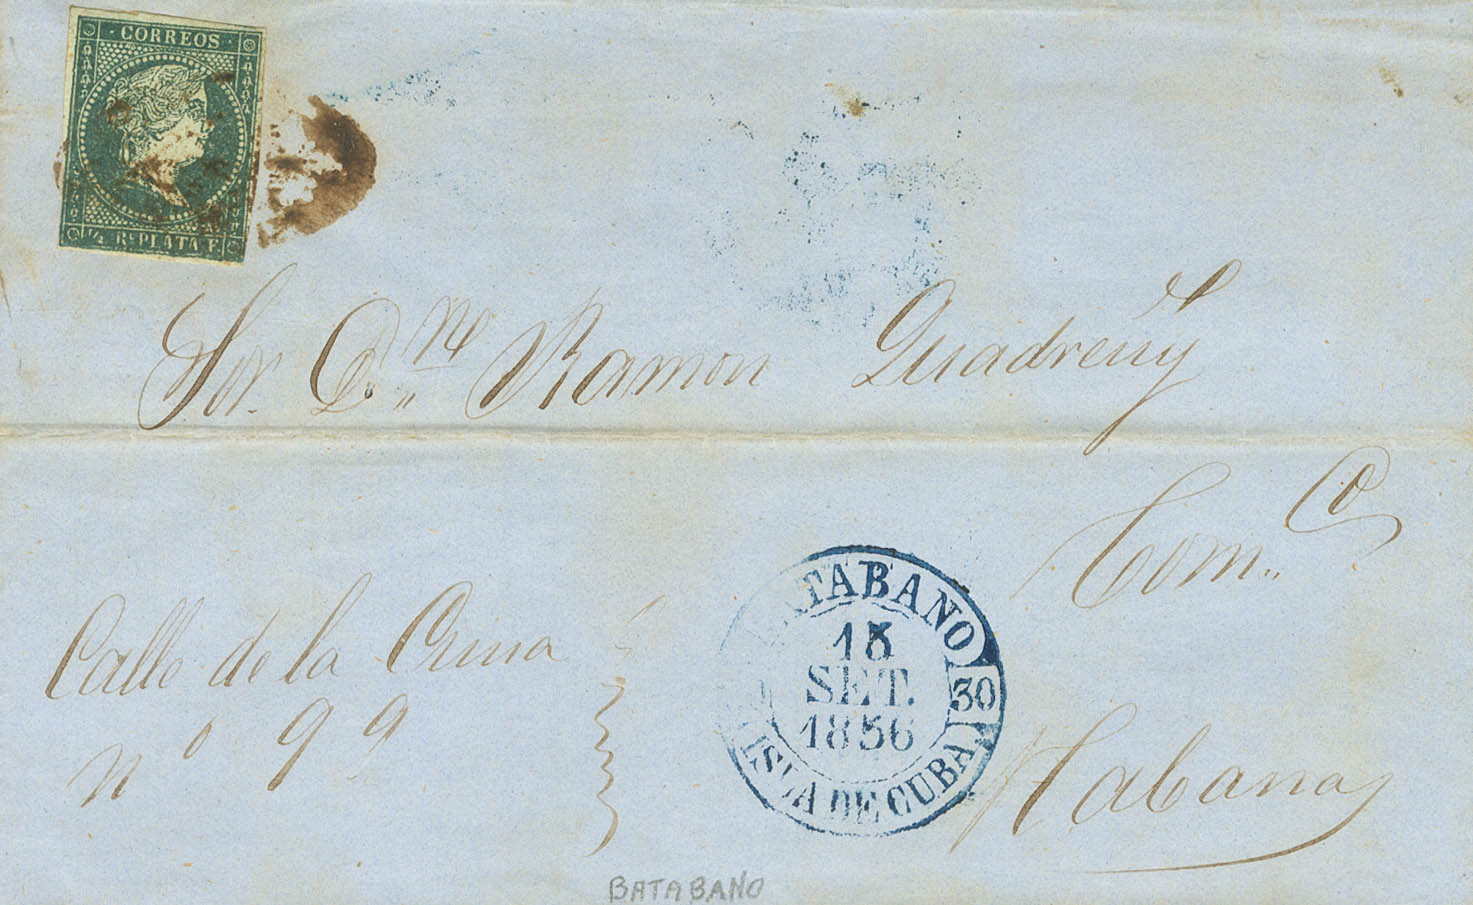 CORREOS
½ Rl PLATA F.
Sor. Dn. Ramon Quadreny
Com.co
Calle de la Cuna
no 99
BATABANO
15
SET.
1856
30
ISLA DE CUBA
Habana
BATABANO